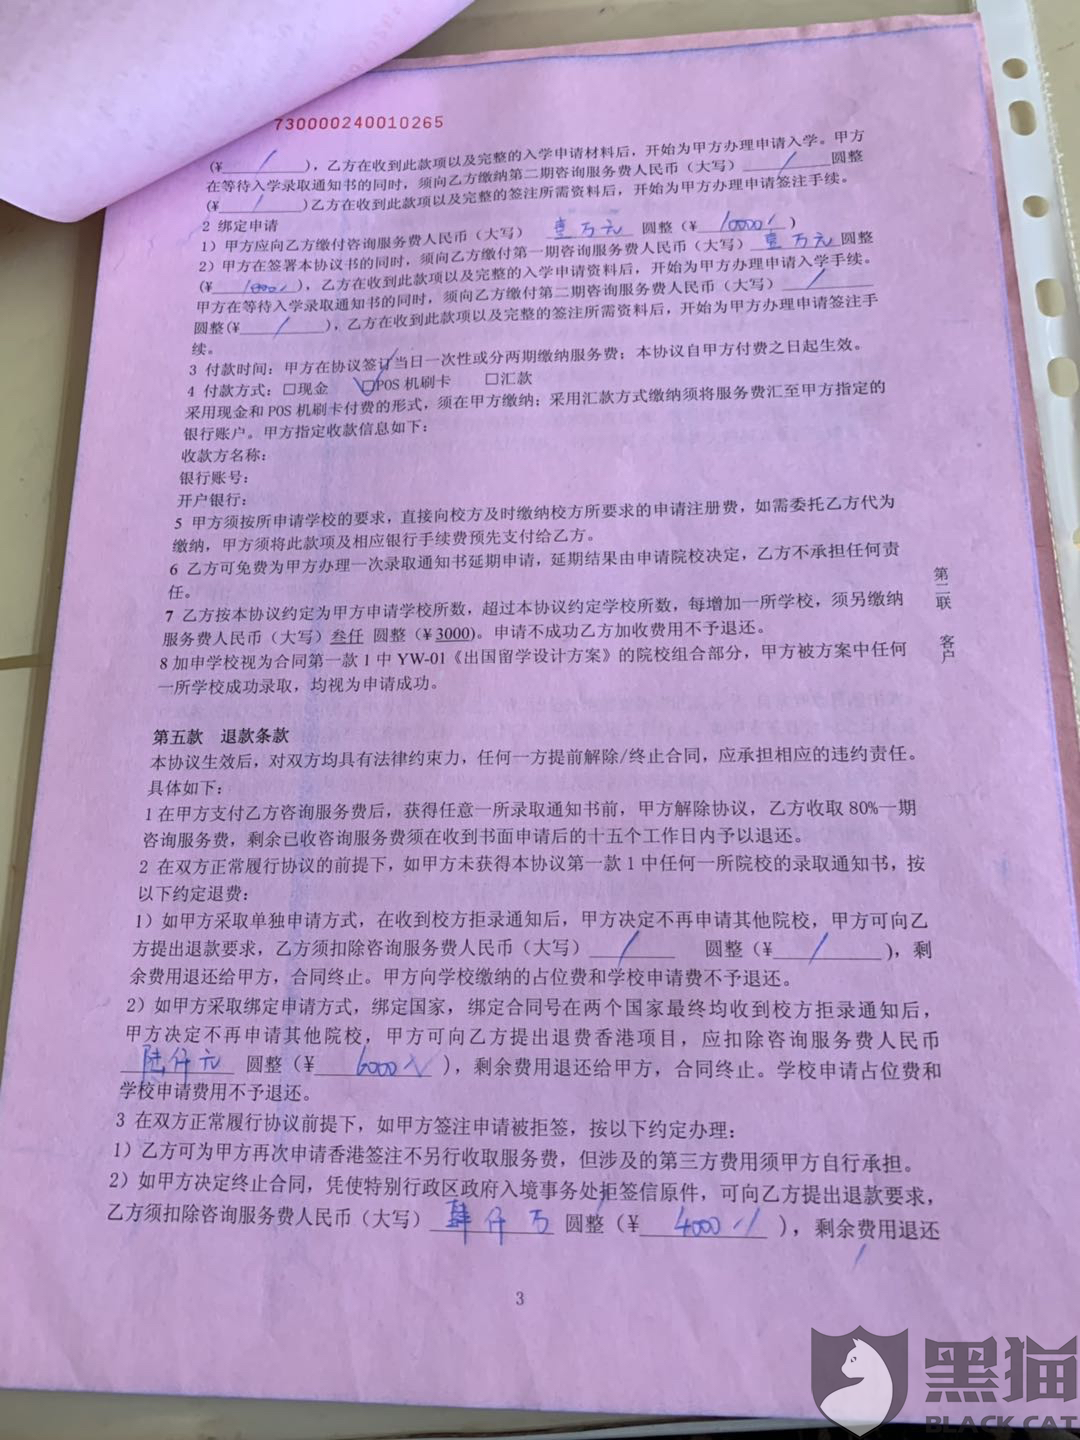 730000240010265
(¥ / )，乙方在收到此款项以及完整的入学申请材料后，开始为甲方办理申请入学。甲方
在等待入学录取通知书的同时，须向乙方缴纳第二期咨询服务费人民币（大写） / 圆整
(¥ / )乙方在收到此款项以及完整的签注所需资料后，开始为甲方办理申请签注手续。
2 绑定申请
1）甲方应向乙方缴付咨询服务费人民币（大写） 壹万元 圆整（¥ 10000 ）
2）甲方在签署本协议书的同时，须向乙方缴付第一期咨询服务费人民币（大写）壹万元圆整
(¥ )，乙方在收到此款项以及完整的入学申请资料后，开始为甲方办理申请入学手续。
甲方在等待入学录取通知书的同时，须向乙方缴付第二期咨询服务费人民币（大写） /
圆整(¥ / )，乙方在收到此款项以及完整的签注所需资料后，开始为甲方办理申请签注手
续。
3 付款时间：甲方在协议签订当日一次性或分两期缴纳服务费；本协议自甲方付费之日起生效。
4 付款方式：□现金 ☑POS 机刷卡 □汇款
采用现金和 POS 机刷卡付费的形式，须在甲方缴纳；采用汇款方式缴纳须将服务费汇至甲方指定的
银行账户。甲方指定收款信息如下：
收款方名称：
银行账号：
开户银行：
5 甲方须按所申请学校的要求，直接向校方及时缴纳校方所要求的申请注册费，如需委托乙方代为
缴纳，甲方须将此款项及相应银行手续费预先支付给乙方。
6 乙方可免费为甲方办理一次录取通知书延期申请，延期结果由申请院校决定，乙方不承担任何责
任。
7 乙方按本协议约定为甲方申请学校所数，超过本协议约定学校所数，每增加一所学校，须另缴纳
服务费人民币（大写）叁仟 圆整（¥3000)。申请不成功乙方加收费用不予退还。
8 加申学校视为合同第一款 1 中 YW-01《出国留学设计方案》的院校组合部分，甲方被方案中任何
一所学校成功录取，均视为申请成功。
第二联 客户
第五款 退款条款
本协议生效后，对双方均具有法律约束力，任何一方提前解除/终止合同，应承担相应的违约责任。
具体如下：
1 在甲方支付乙方咨询服务费后，获得任意一所录取通知书前，甲方解除协议，乙方收取 80%一期
咨询服务费，剩余已收咨询服务费须在收到书面申请后的十五个工作日内予以退还。
2 在双方正常履行协议的前提下，如甲方未获得本协议第一款 1 中任何一所院校的录取通知书，按
以下约定退费：
1）如甲方采取单独申请方式，在收到校方拒录通知后，甲方决定不再申请其他院校，甲方可向乙
方提出退款要求，乙方须扣除咨询服务费人民币（大写） / 圆整（¥ / )，剩
余费用退还给甲方，合同终止。甲方向学校缴纳的占位费和学校申请费不予退还。
2）如甲方采取绑定申请方式，绑定国家，绑定合同号在两个国家最终均收到校方拒录通知后，
甲方决定不再申请其他院校，甲方可向乙方提出退费香港项目，应扣除咨询服务费人民币
陆仟元 圆整（¥ 6000 ），剩余费用退还给甲方，合同终止。学校申请占位费和
学校申请费用不予退还。
3 在双方正常履行协议前提下，如甲方签注申请被拒签，按以下约定办理：
1）乙方可为甲方再次申请香港签注不另行收取服务费，但涉及的第三方费用须甲方自行承担。
2）如甲方决定终止合同，凭使特别行政区政府入境事务处拒签信原件，可向乙方提出退款要求，
乙方须扣除咨询服务费人民币（大写） 肆仟 圆整（¥ 4000 ），剩余费用退还
3
黑猫
BLACK CAT